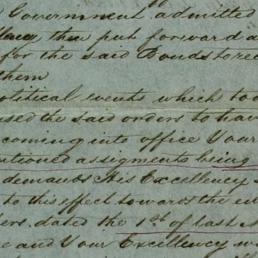 Government admitted
then put forward a
for the said Bonds to rec
them
political events which too
used the said orders to hav
coming into office Your
tioned assigments being
demands His Excellency
to this effect towards the e
dated the 1st of last
and Your Excellency w